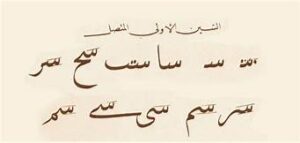 السين الاولى المتصل
سد سا ست سح سر
سر سم سى سے سم